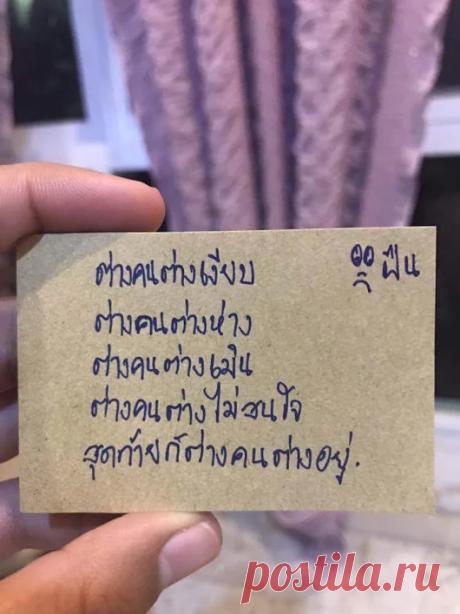 ต่างคนต่างเงียบ
ต่างคนต่างห่าง
ต่างคนต่างเมิน
ต่างคนต่างไม่สนใจ
สุดท้ายก็ต่างคนต่างอยู่.
ฝืน
postila.ru